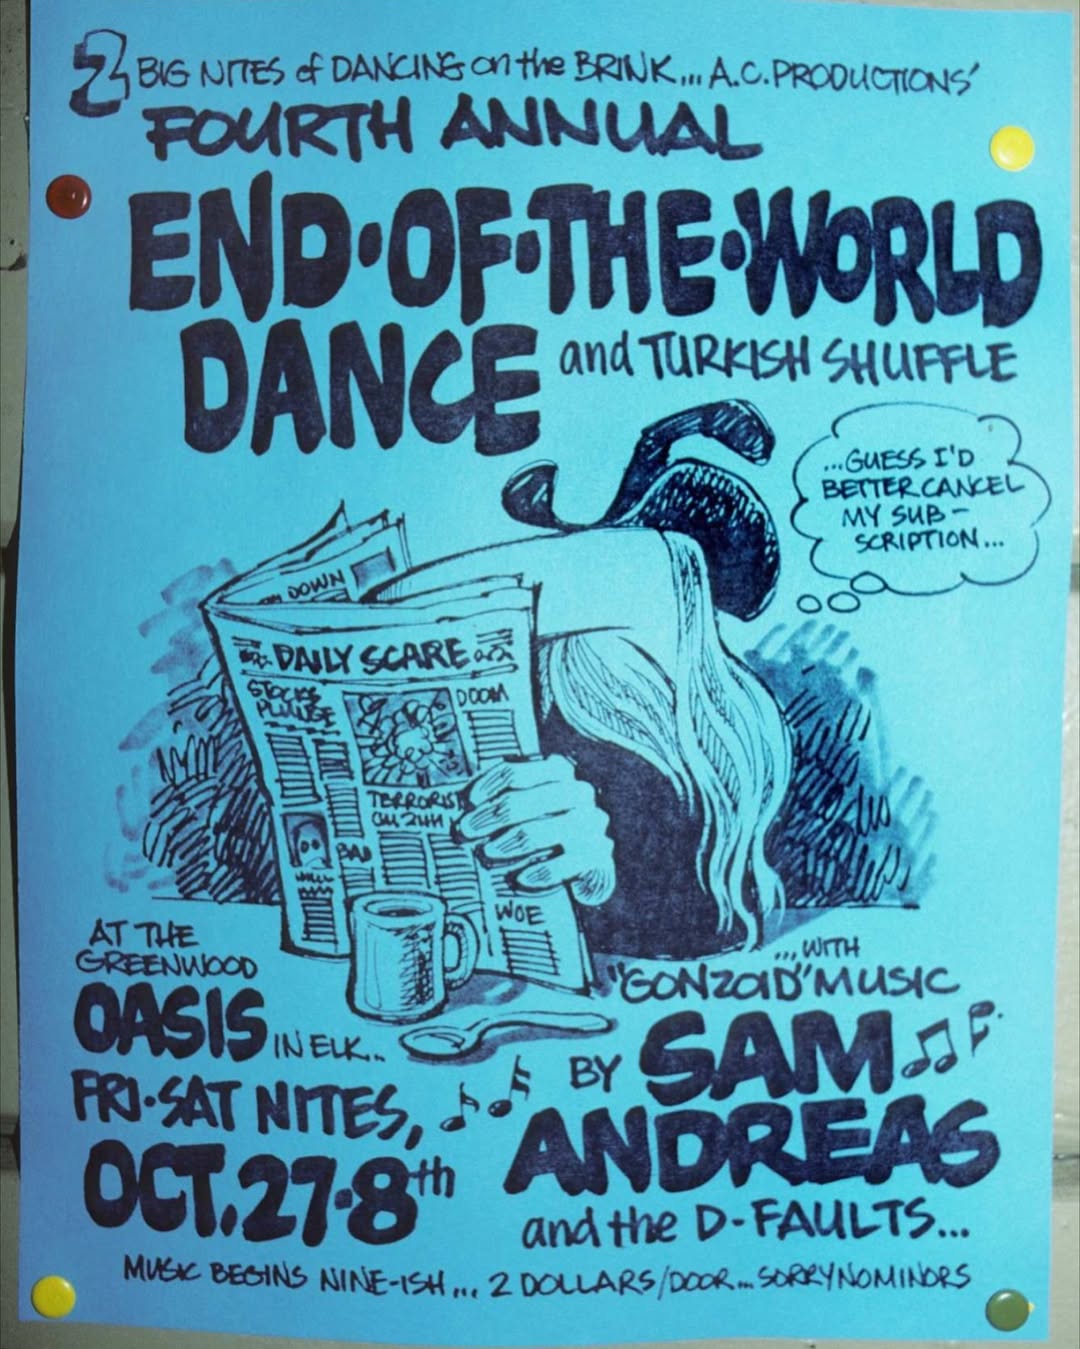 2 BIG NITES of DANCING on the BRINK... A.C. PRODUCTIONS'
FOURTH ANNUAL
END·OF·THE·WORLD
DANCE and TURKISH SHUFFLE
...GUESS I'D
BETTER CANCEL
MY SUB-
SCRIPTION...
DOWN
DAILY SCARE
STOCKS
PLUNGE
DOOM
TERRORIST
BAD
WOE
AT THE
GREENWOOD
OASIS IN ELK...
FRI·SAT NITES,
OCT. 27·8th
...WITH
"GONZOID" MUSIC
BY SAM
ANDREAS
and the D-FAULTS...
MUSIC BEGINS NINE-ISH... 2 DOLLARS/DOOR... SORRY NO MINORS